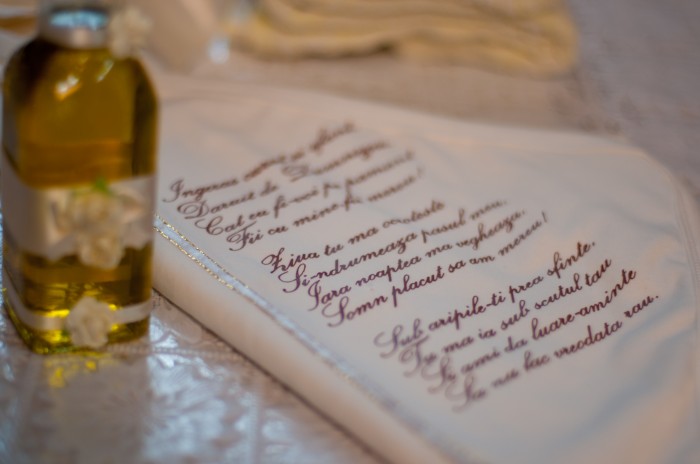 Ingeras
Daruit de
Cat eu fi-voi pe pamant
Fii cu mine pe mereu!
Ziua tu ma ocroteste
Si-ndrumeaza pasul meu.
Iara noaptea ma vegheaza,
Somn placut sa am mereu!
Sub aripile-ti prea sfinte,
Tu ma ia sub scutul tau
Si ami da luare-aminte
Sa nu fac vreodata rau.